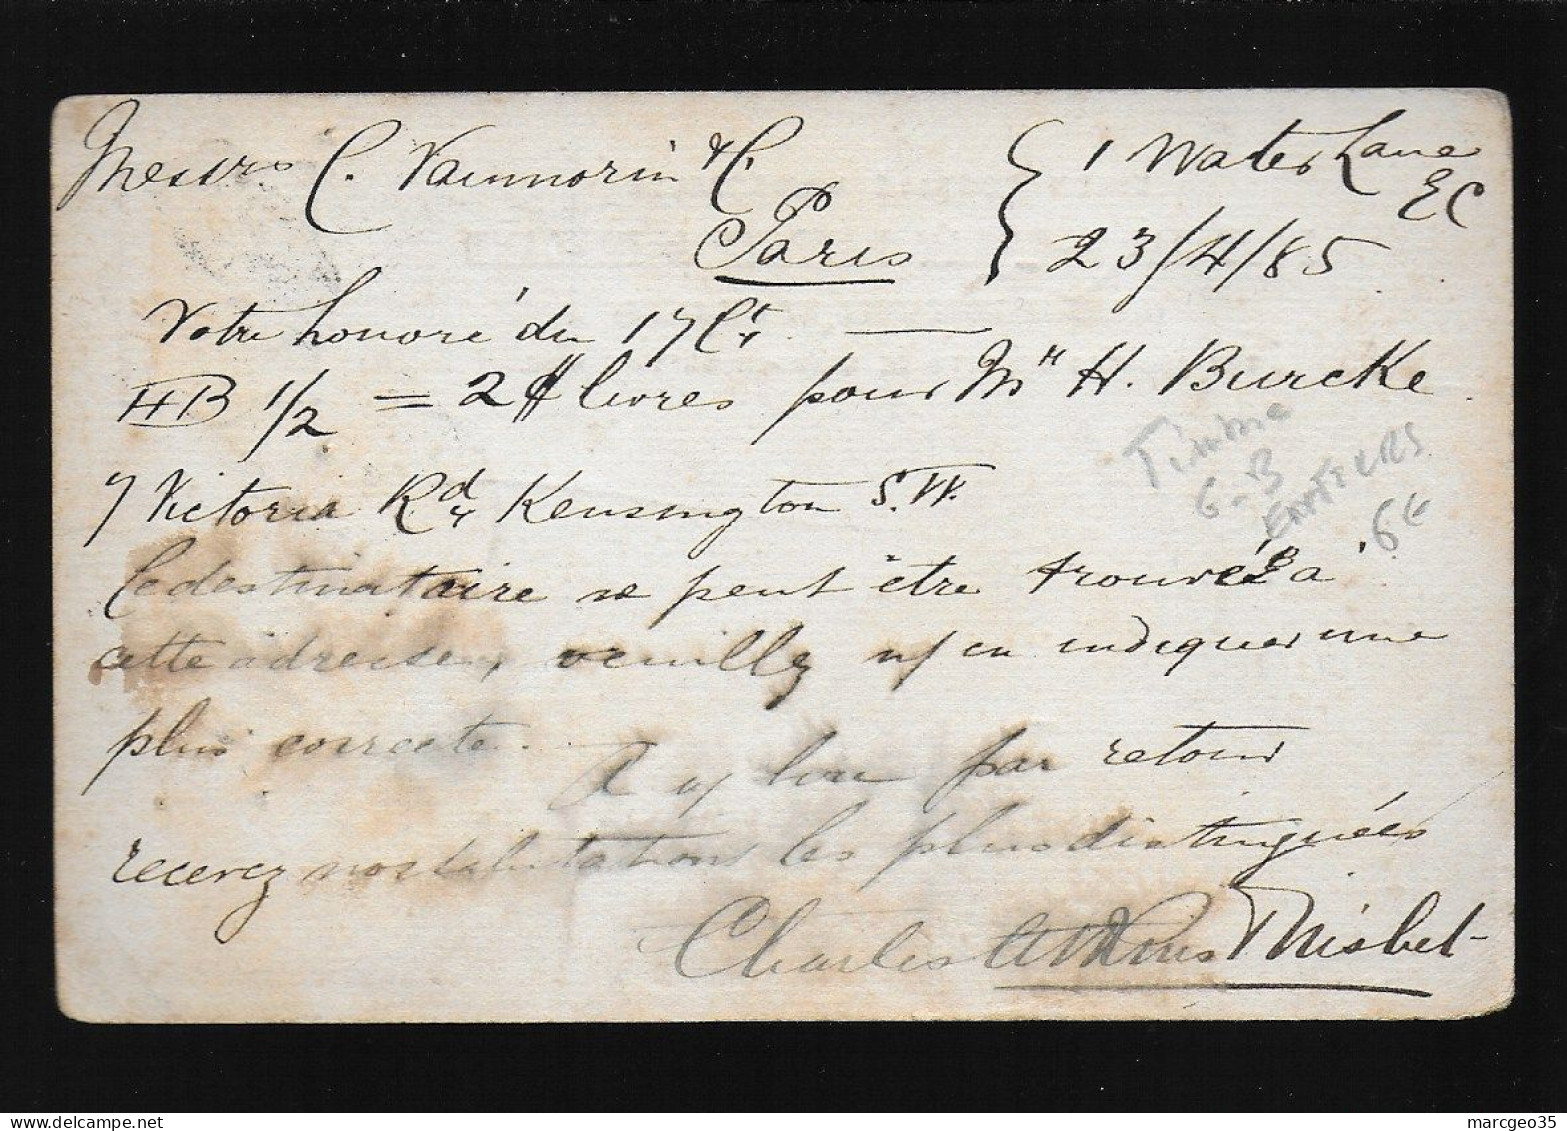 Messrs C. Vaumorin & C.
Paris
1 Water Lane
EC
23/4/85
Votre honoré du 17 Ct.
HB 1/2 = 2 livres pour Mr H. Burcke
7 Victoria Rd. Kensington S.W.
Le destinataire ne peut être trouvé à
cette adresse, veuillez n/ en indiquer une
plus correcte.
A v/ lire par retour
recevez nos salutations les plus distinguées
Charles Nisbet
Timbre
G-B
ENTIERS
6€
delcampe.net
marcgeo35